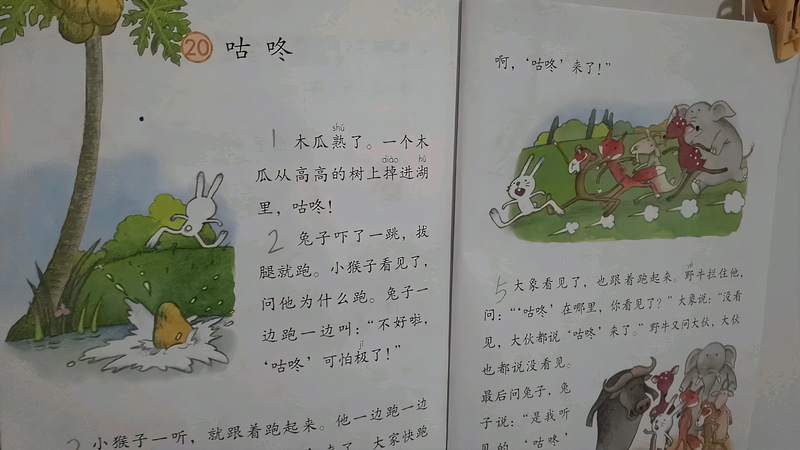 20 咕咚
shú
1 木瓜熟了。一个木
diào hú
瓜从高高的树上掉进湖
里，咕咚！
2 兔子吓了一跳，拔
腿就跑。小猴子看见了，
问他为什么跑。兔子一
边跑一边叫：“不好啦，
jí
‘咕咚’可怕极了！”
小猴子一听，就跟着跑起来。他一边跑一边
大家快跑
啊，‘咕咚’来了！”
yě
5 大象看见了，也跟着跑起来。野牛拦住他，
问：“‘咕咚’在哪里，你看见了？”大象说：“没看
见，大伙都说‘咕咚’来了。”野牛又问大伙，大伙
也都说没看见。
最后问兔子，兔
子说：“是我听
见的，‘咕咚’